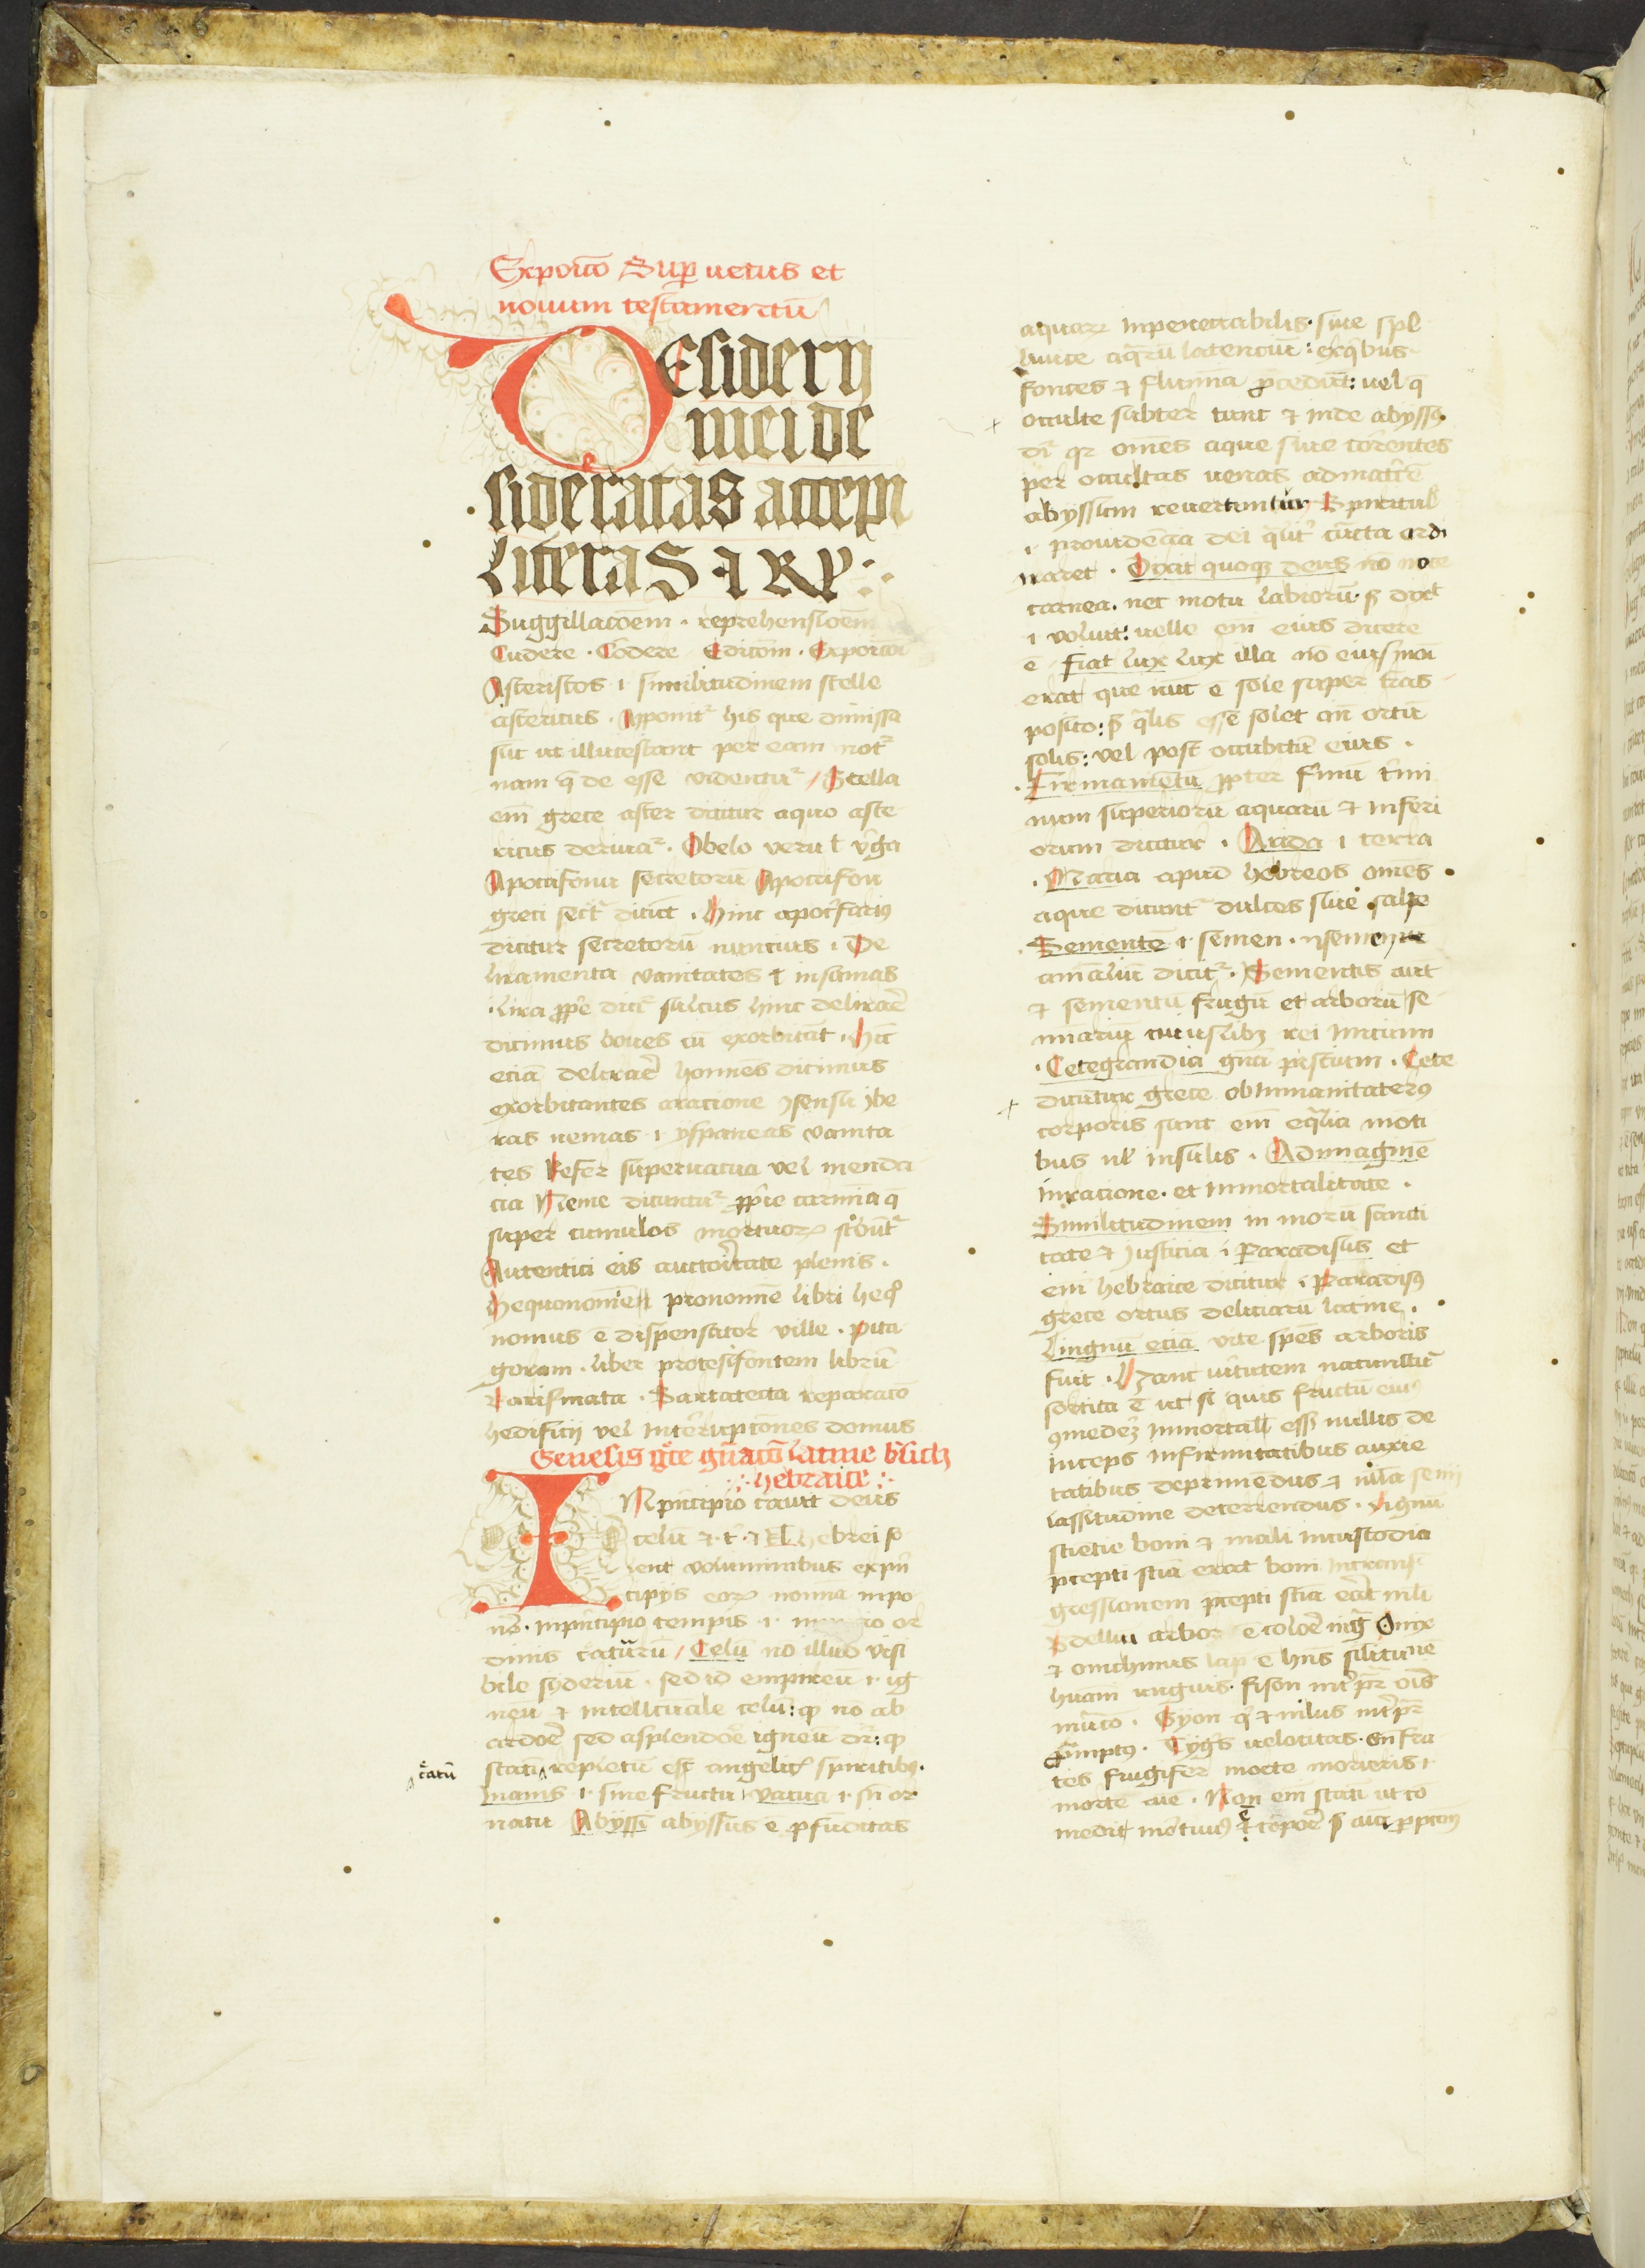 Expoitio Sup uetus et
nouum testamentū
DEsiderij
mei de
sideratas accepi
literas · A RP
Suggillacōem · reprehensioēm
Cudere · Codere Edicōm · Expoicōm
Asteriscos ı similitudinem stelle
astericus · Apponit his que dimissa
sūt ut illucescant per eam not
nam q̄ de esse videntur / Stella
em̄ grece aster dicitur a quo aste
ricus deriuat · Obelo veru l v̄ga
Apocrifoniı secretorū Apocrifon
greci secr̄ dicūt · hinc apocrifarius
dicitur secretorū nuncius · De
liramenta vanitates l insanias
lira pp̄e dicr̄ sulcus hinc deliraē
dicimus boues cū exorbitāt · hīc
eciā deliraē homines dicimus
exorbitantes aracione ⁊sensu ybe
ras nenias ı yspaneas vanita
tes Refer superuacua vel menda
cia Neme dicuntur pp̄rie carmina q̄
super tumulos mortuor scbunt
Autentici eis auctoritate plenis ·
hequonomıen pronomine libri heq
nomus ē dispensator ville · pita
goram · liber protesifontem librū
Carismata · Sartatecta reparacō
hedificij vel interrupciones domus
Genesis gr̄ce gn̄acō latine b'sich
hebraice
IN principio cauit deus
celū ⁊ · t · ⁊ Nl hebrei so
lent voluminibus exprin
cipys eor nomina inpo
ne · Inprincipio tempis · ı · in or
dinis caturarū / Celū nō illud visi
bile syderiū · sed id empireū · ı · ig
neū ⁊ intellectuale celū : qp nō ab
ardoē sed asplendoē igneū dr̄ : qp
statī repletū est angelic spiritibꝫ ·
c̄atū
Inanis · ı · sine fructu ı vacua · ı · sn̄ or
natu Abyssı abyssus ē pfūditas
aquarꝫ inpenetrabilis · siue spel
lunce aq̄rū latencıū : ex q̄bus
fontes ⁊ flumina p̄cedūt : uel q̄
occulte subter eunt ⁊ inde abyssꝰ
dr̄ qꝛ omēs aque siue torrentes
per occultas uenas ad matrē
abyssum reuertuntur Spirıtus
ı · prouidencia dei q̄lit cūcta ordi
naret · Dixit quoqꝫ deus nō uoce
carnea · nec motu labiorū · s dixit
ı voluit : uelle em̄ eius dicere
ē fiat lux lux illa nō eiusmōi
erat que nūc ē sole super tras
posito : s q̄lis esse solet an̄ ortū
solis : vel post occubitū eius ·
Firmamentū ppter firmū t̄mi
num superiorū aquarū ⁊ inferi
orum dicitur · Arida ı terra
Maria apud hebreos omēs
aque dicunt dulces siue salse
Sementē ı · semen · ⁊semen
animaliū dicit · Sementis aut
⁊ sementū frugū et arborū se
minariū cuiuslibꝫ rei inicium
Cete grandia gn̄a piscium · Cete
dicūtur grece ob inmanitatem
corporis sunt em̄ eq̄lia monti
bus ul insulis · Ad imaginē
inracione · et inmortalitate ·
Similitudinem in morū sancti
tate ⁊ Justicia i Paradisus et
em̄ hebraice dicitur · Paradisꝰ
grece ortus deliciarū latine ·
Lingnū eciā vite spēs arboris
fuit · Hanc virtutem naturalit
sortita ē ut si quis fructū eius
ꝯmederꝫ inmortalis esset nullis de
inceps infirmitatibus auxie
tatibus deprimēdus ⁊ nulla senij
lassitudine deterrendus · Lignū
sciēcie boni ⁊ mali incustodia
p̄cepti scia erat boni intrans
gressionem p̄cepti scia erat mali
Bdellıū arbor ē coloē nig Onix
⁊ onichinus lap ē hn̄s silitudinē
humani unguis · fison int̄pr̄ oris
mutacō · Gyon q̄ ⁊ nilus int̄pr̄
p̄rumptꝰ · Tygris uelocitas · eufra
tes frugifer morte morieris ı ·
morte aīe · Non em̄ stati ut co
medit mortuus ē tempoē s aīe